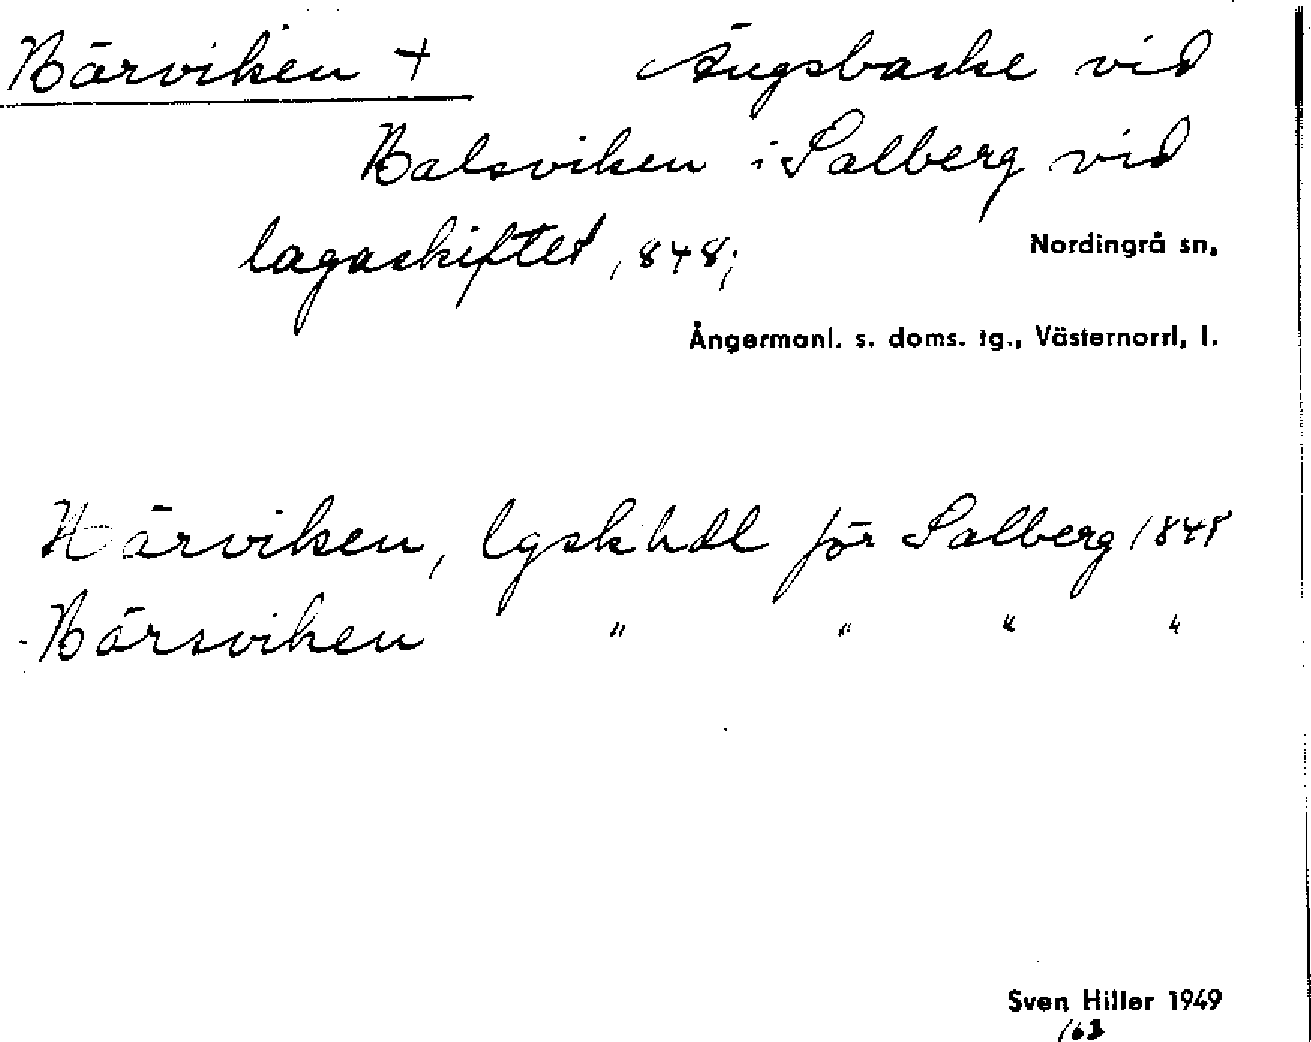 Bärviken +   Ängsbacke vid
Balsviken i Salberg vid
lagaskiftet 1848;
Nordingrå sn.
Ångermanl. s. doms. tg., Västernorrl. l.
Härviken, lgskhdl för Salberg 1848
Bärsviken " " " "
Sven Hiller 1949
163